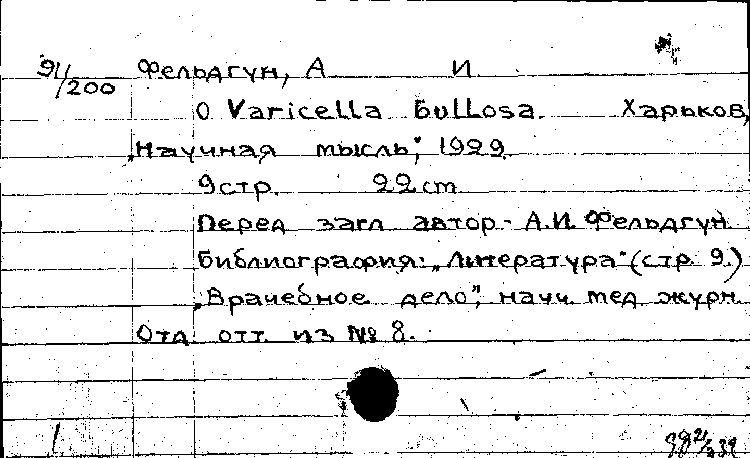 91/200 Фельдгун, А И
О Varicella bullosa. Харьков,
„Научная мысль", 1929.
9 стр. 22 cm
Перед загл автор - А.И. Фельдгун
Библиография: „Литература" (стр. 9.)
„Врачебное дело", научн. мед журн.
Отд. отт. из № 8.